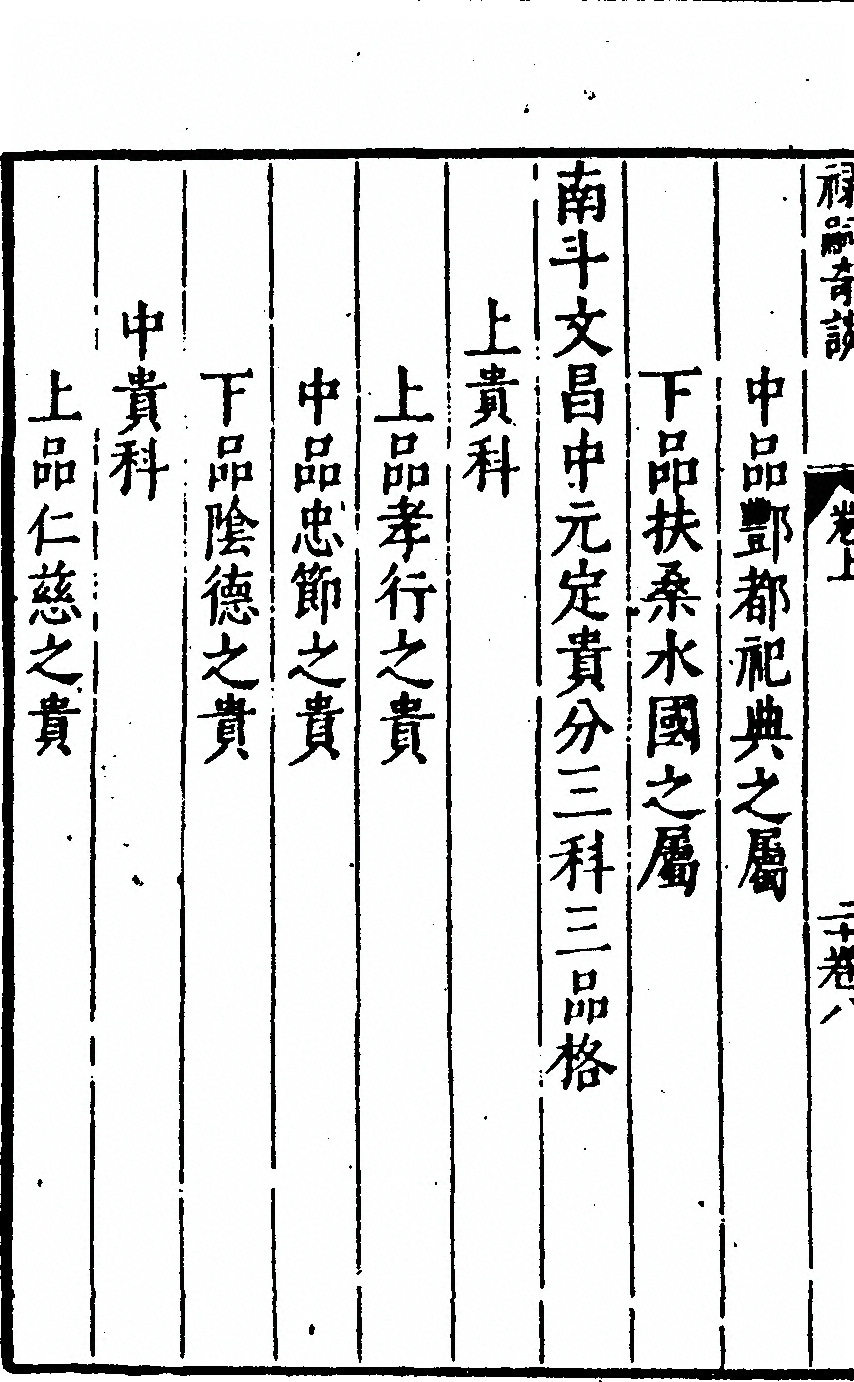 祿嗣奇談
卷上
二十卷八
中品酆都祀典之屬
下品扶桑水國之屬
南斗文昌中元定貴分三科三品格
上貴科
上品孝行之貴
中品忠節之貴
下品陰德之貴
中貴科
上品仁慈之貴